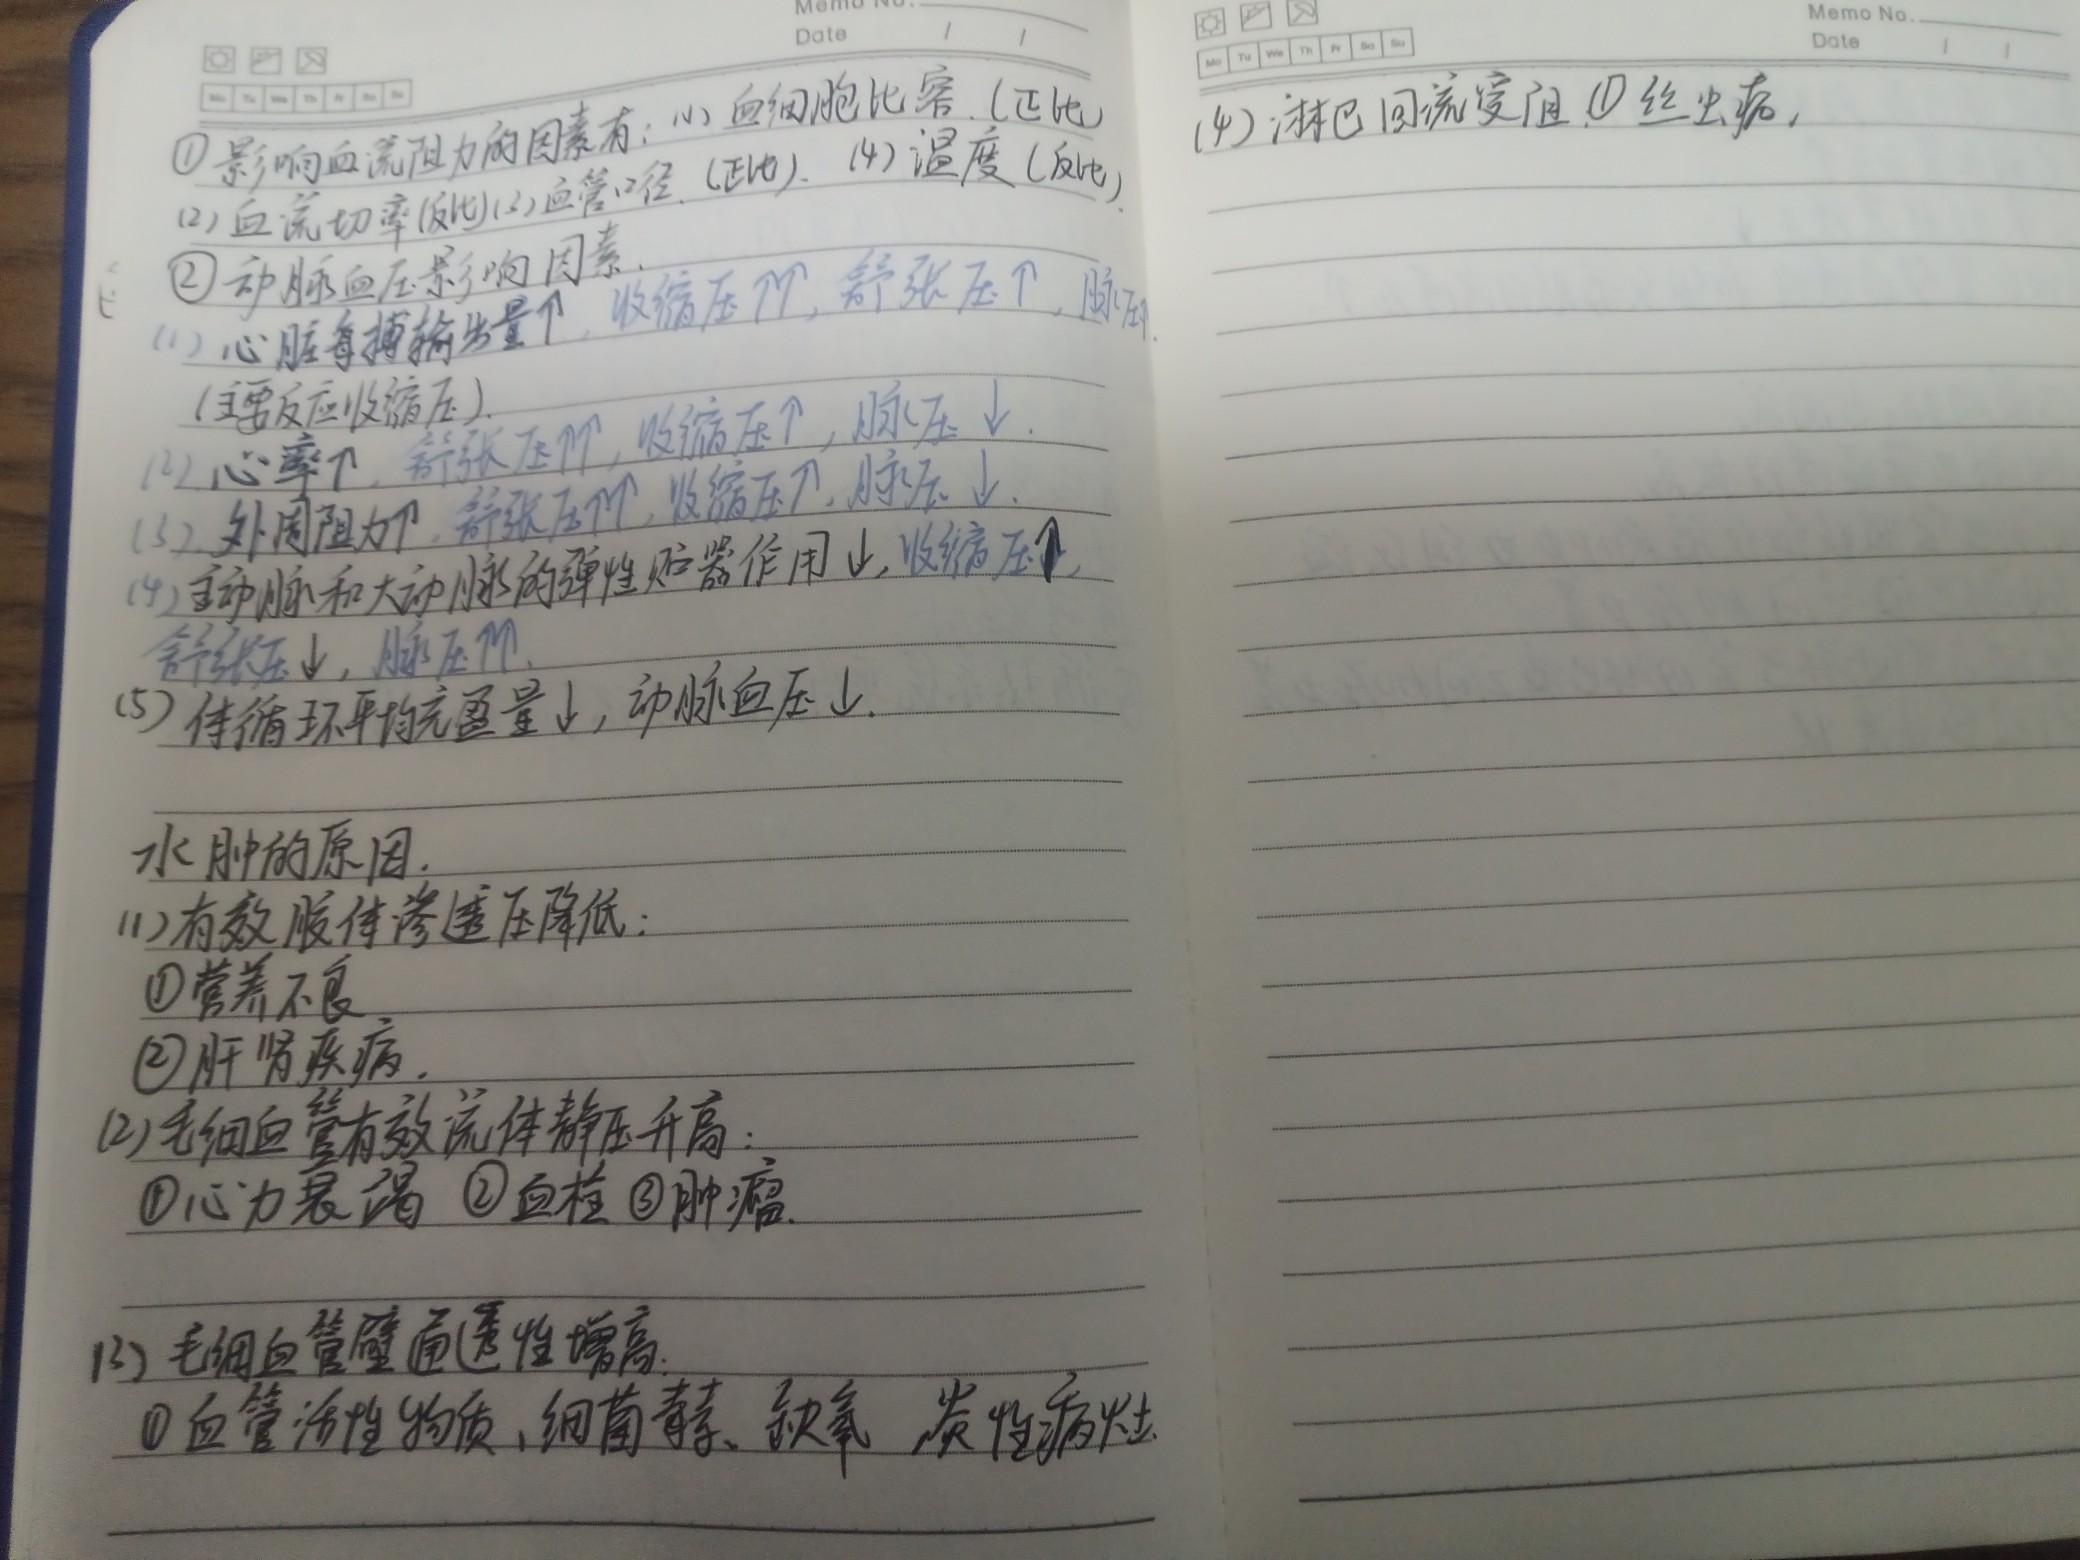 Memo No.
Date / /
Mo Tu We Th Fr Sa Su
①影响血流阻力的因素有：(1)血细胞比容.(正比)
(2)血流切率(反比)(3)血管口径.(正比).(4)温度(反比).
②动脉血压影响因素.
(1)心脏每搏输出量↑,收缩压↑↑,舒张压↑,脉压↑.
(主要反应收缩压).
(2)心率↑,舒张压↑↑,收缩压↑,脉压↓.
(3)外周阻力↑,舒张压↑↑,收缩压↑,脉压↓.
(4)主动脉和大动脉的弹性贮器作用↓,收缩压↑,
舒张压↓,脉压↑↑.
(5)体循环平均充盈量↓,动脉血压↓.
水肿的原因.
(1)有效胶体渗透压降低：
①营养不良
②肝肾疾病.
(2)毛细血管有效流体静压升高：
①心力衰竭 ②血栓 ③肿瘤.
(3)毛细血管壁通透性增高.
①血管活性物质、细菌毒素、缺氧 炎性病灶.
Memo No.
Date / /
Mo Tu We Th Fr Sa Su
(4)淋巴回流受阻.①丝虫病,